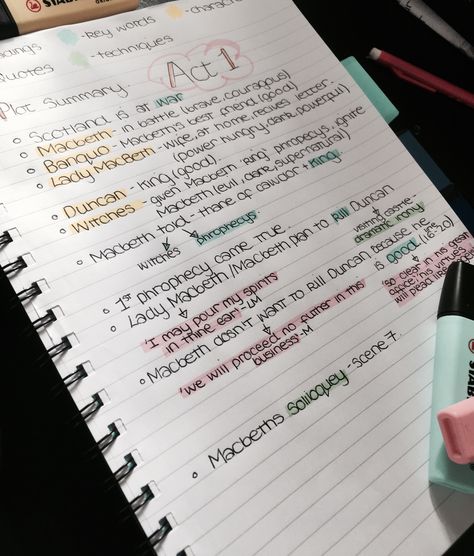 -key words
-character
Quotes
-techniques
Act 1
Plot Summary
• Scotland is at war
• Macbeth - in battle (brave, courageous)
• Banquo - Macbeth's best friend (good)
• Lady Macbeth - wife, at home, recives letter -
(power hungry, dark, powerful)
• Duncan - King (good).
• Witches - given Macbeth + Banquo prophecys, ignite
Macbeth (evil, dark, supernatural)
• Macbeth told - thane of cawdor + King
witches
prophecys
• 1st prophecy came true
• Lady Macbeth/Macbeth plan to kill Duncan
visiting castle -
dramatic irony
'I may pour my spirits
in thine ear' -LM
• Macbeth don't want to kill Duncan because he
is good
'so clear in his great
office
'we will proceed no futher in this
business'-M
• Macbeths soliloquey - scene 7
STABILO